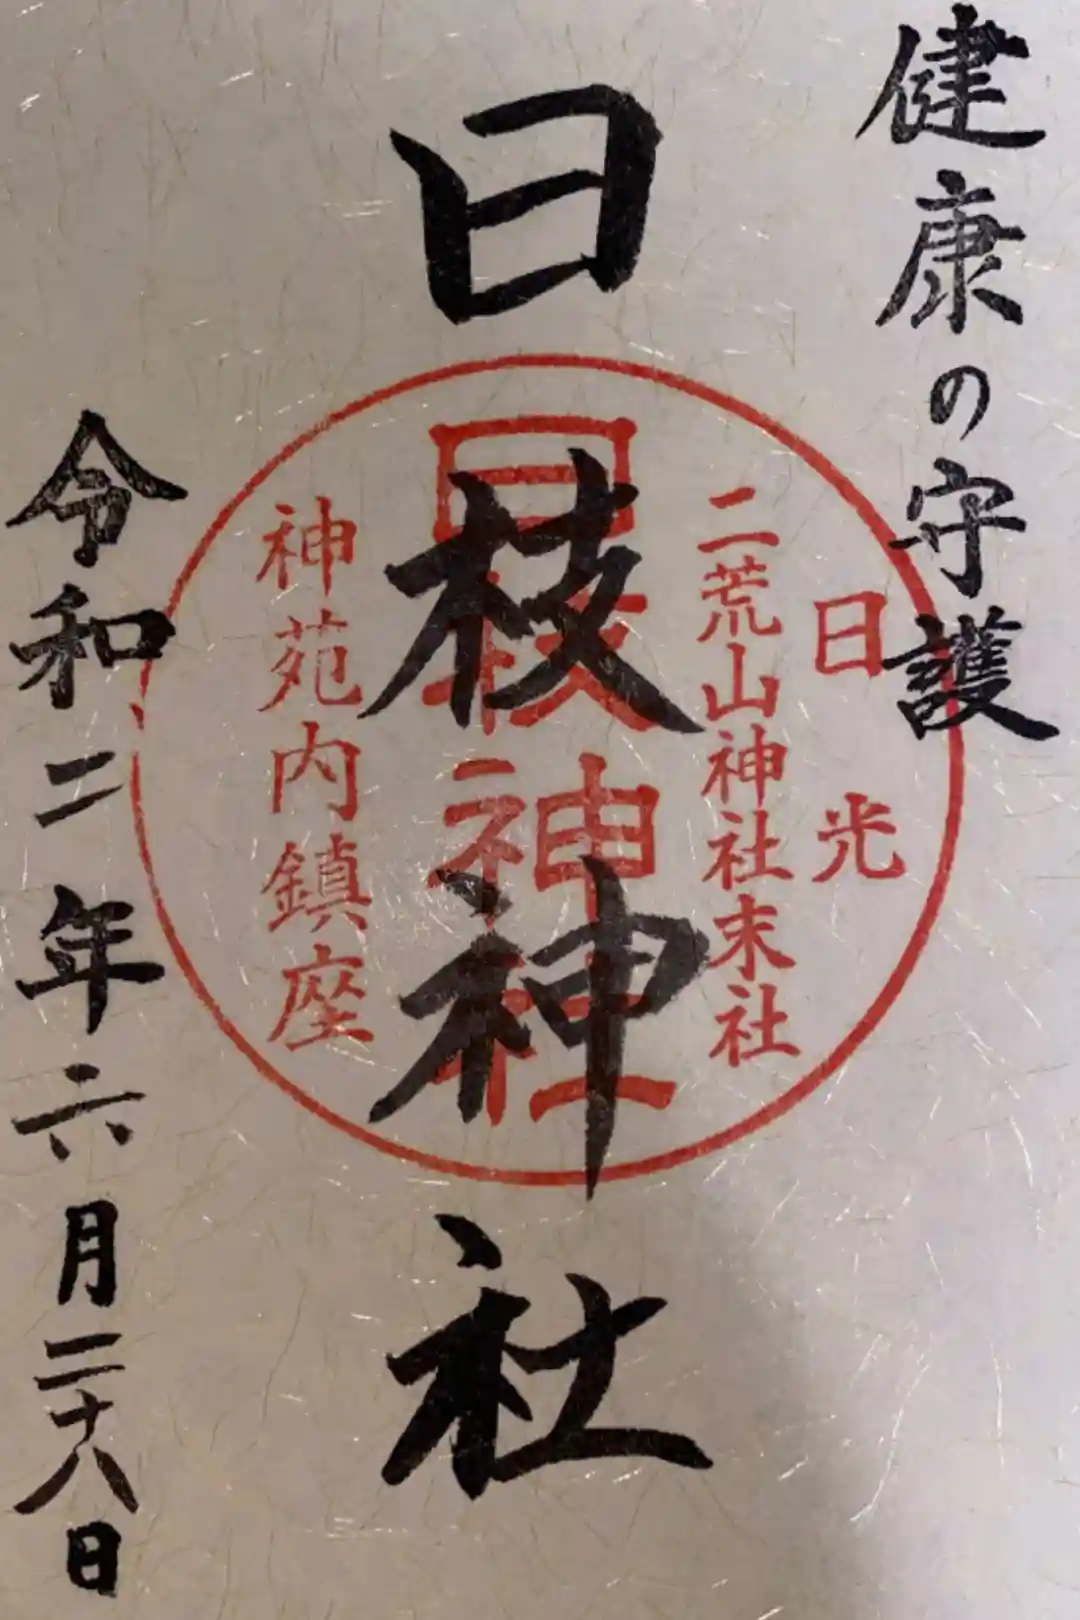 健康の守護
日光
二荒山神社末社
日枝神社
日枝神社
神苑内鎮座
令和二年六月二十八日